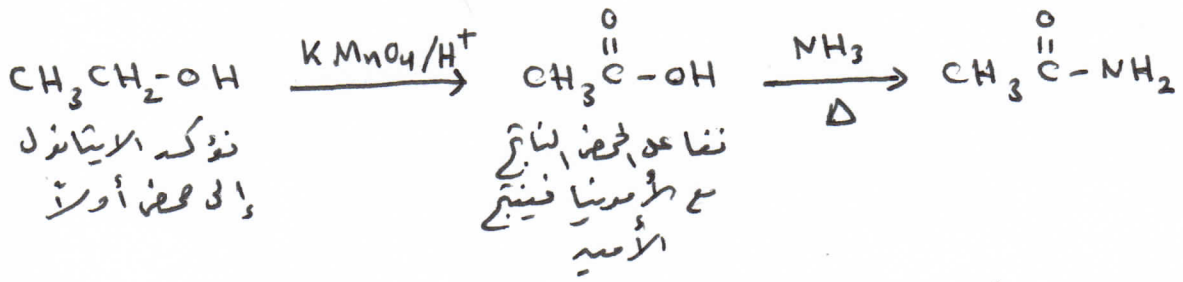 O O
CH₃CH₂-OH KMnO₄/H⁺ CH₃C-OH NH₃ CH₃C-NH₂
Δ
نؤكسد الايثانول
إلى حمض أولاً
نفاعل الحمض الناتج
مع الأمونيا فينتج
الأميد